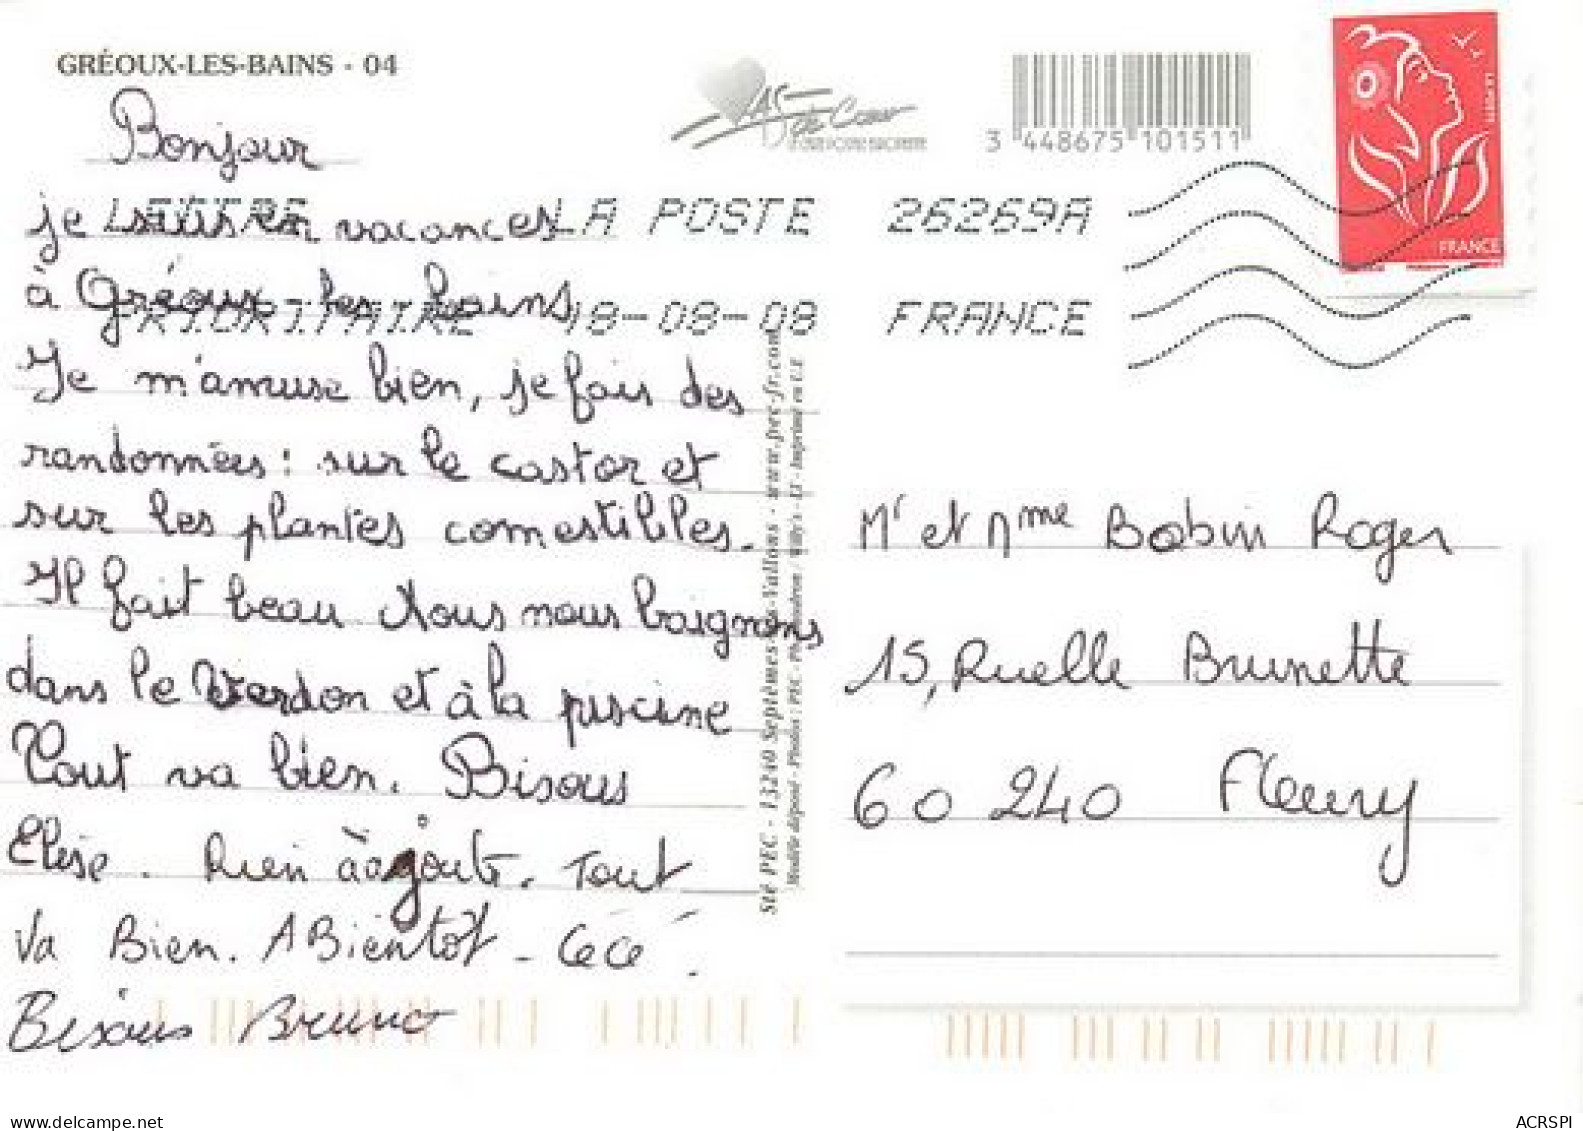 GRÉOUX-LES-BAINS - 04
Bonjour
je suis en vacances
à Gréoux les bains
Je m'amuse bien, je fais des
randonnées : sur le castor et
sur les plantes comestibles.
Il fait beau Nous nous baignons
dans le Verdon et à la piscine
Tout va bien. Bisous
Elise. Rien à ajouter. Tout
va Bien. A Bientôt - Cécé.
Bisous Bruno
As de Cœur
3 448675 101511
LETTRE LA POSTE 26269A
PRIORITAIRE 18-08-08 FRANCE
LA POSTE
FRANCE
Sté PEC - 13240 Septèmes-les-Vallons - www.pec-fr.com
Modèle déposé - Photos : PEC - Philodendron / Willy's - LT - Imprimé en U.E
Mr et Mme Bobin Roger
15, Ruelle Brunette
60 240 Fleury
ACRSPI